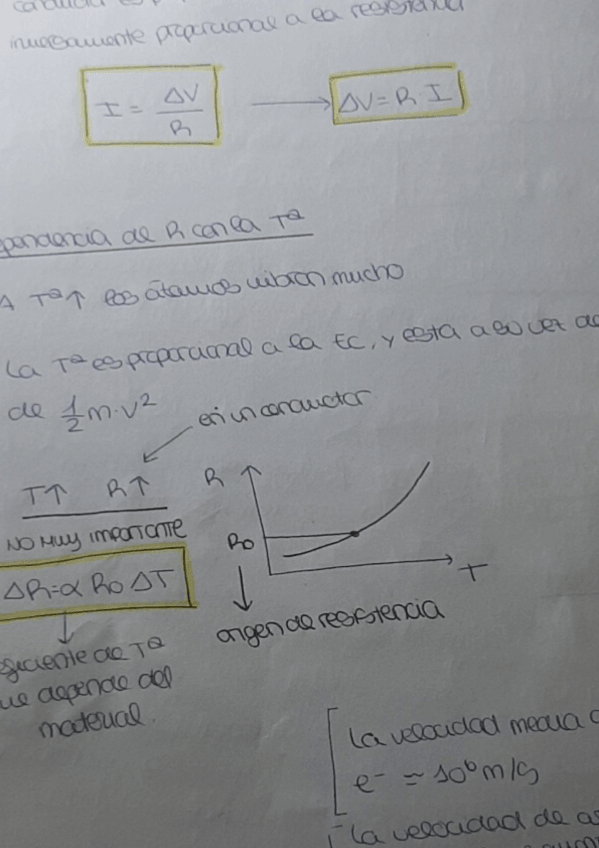 inversamente proporcional a la resistencia
I = ΔV / R → ΔV = R · I
pendencia de R con la Tª
A Tª ↑ los átomos vibran mucho
La Tª es proporcional a la EC, y esta a su vez
de 1/2 m · v²
en un conductor
T↑ R↑
NO MUY IMPORTANTE
R
R₀
T
ΔR = α R₀ ΔT
origen de resistencia
eficiente de Tª
ue depende del
material.
La velocidad media
e⁻ ≃ 10⁶ m/s
La velocidad de